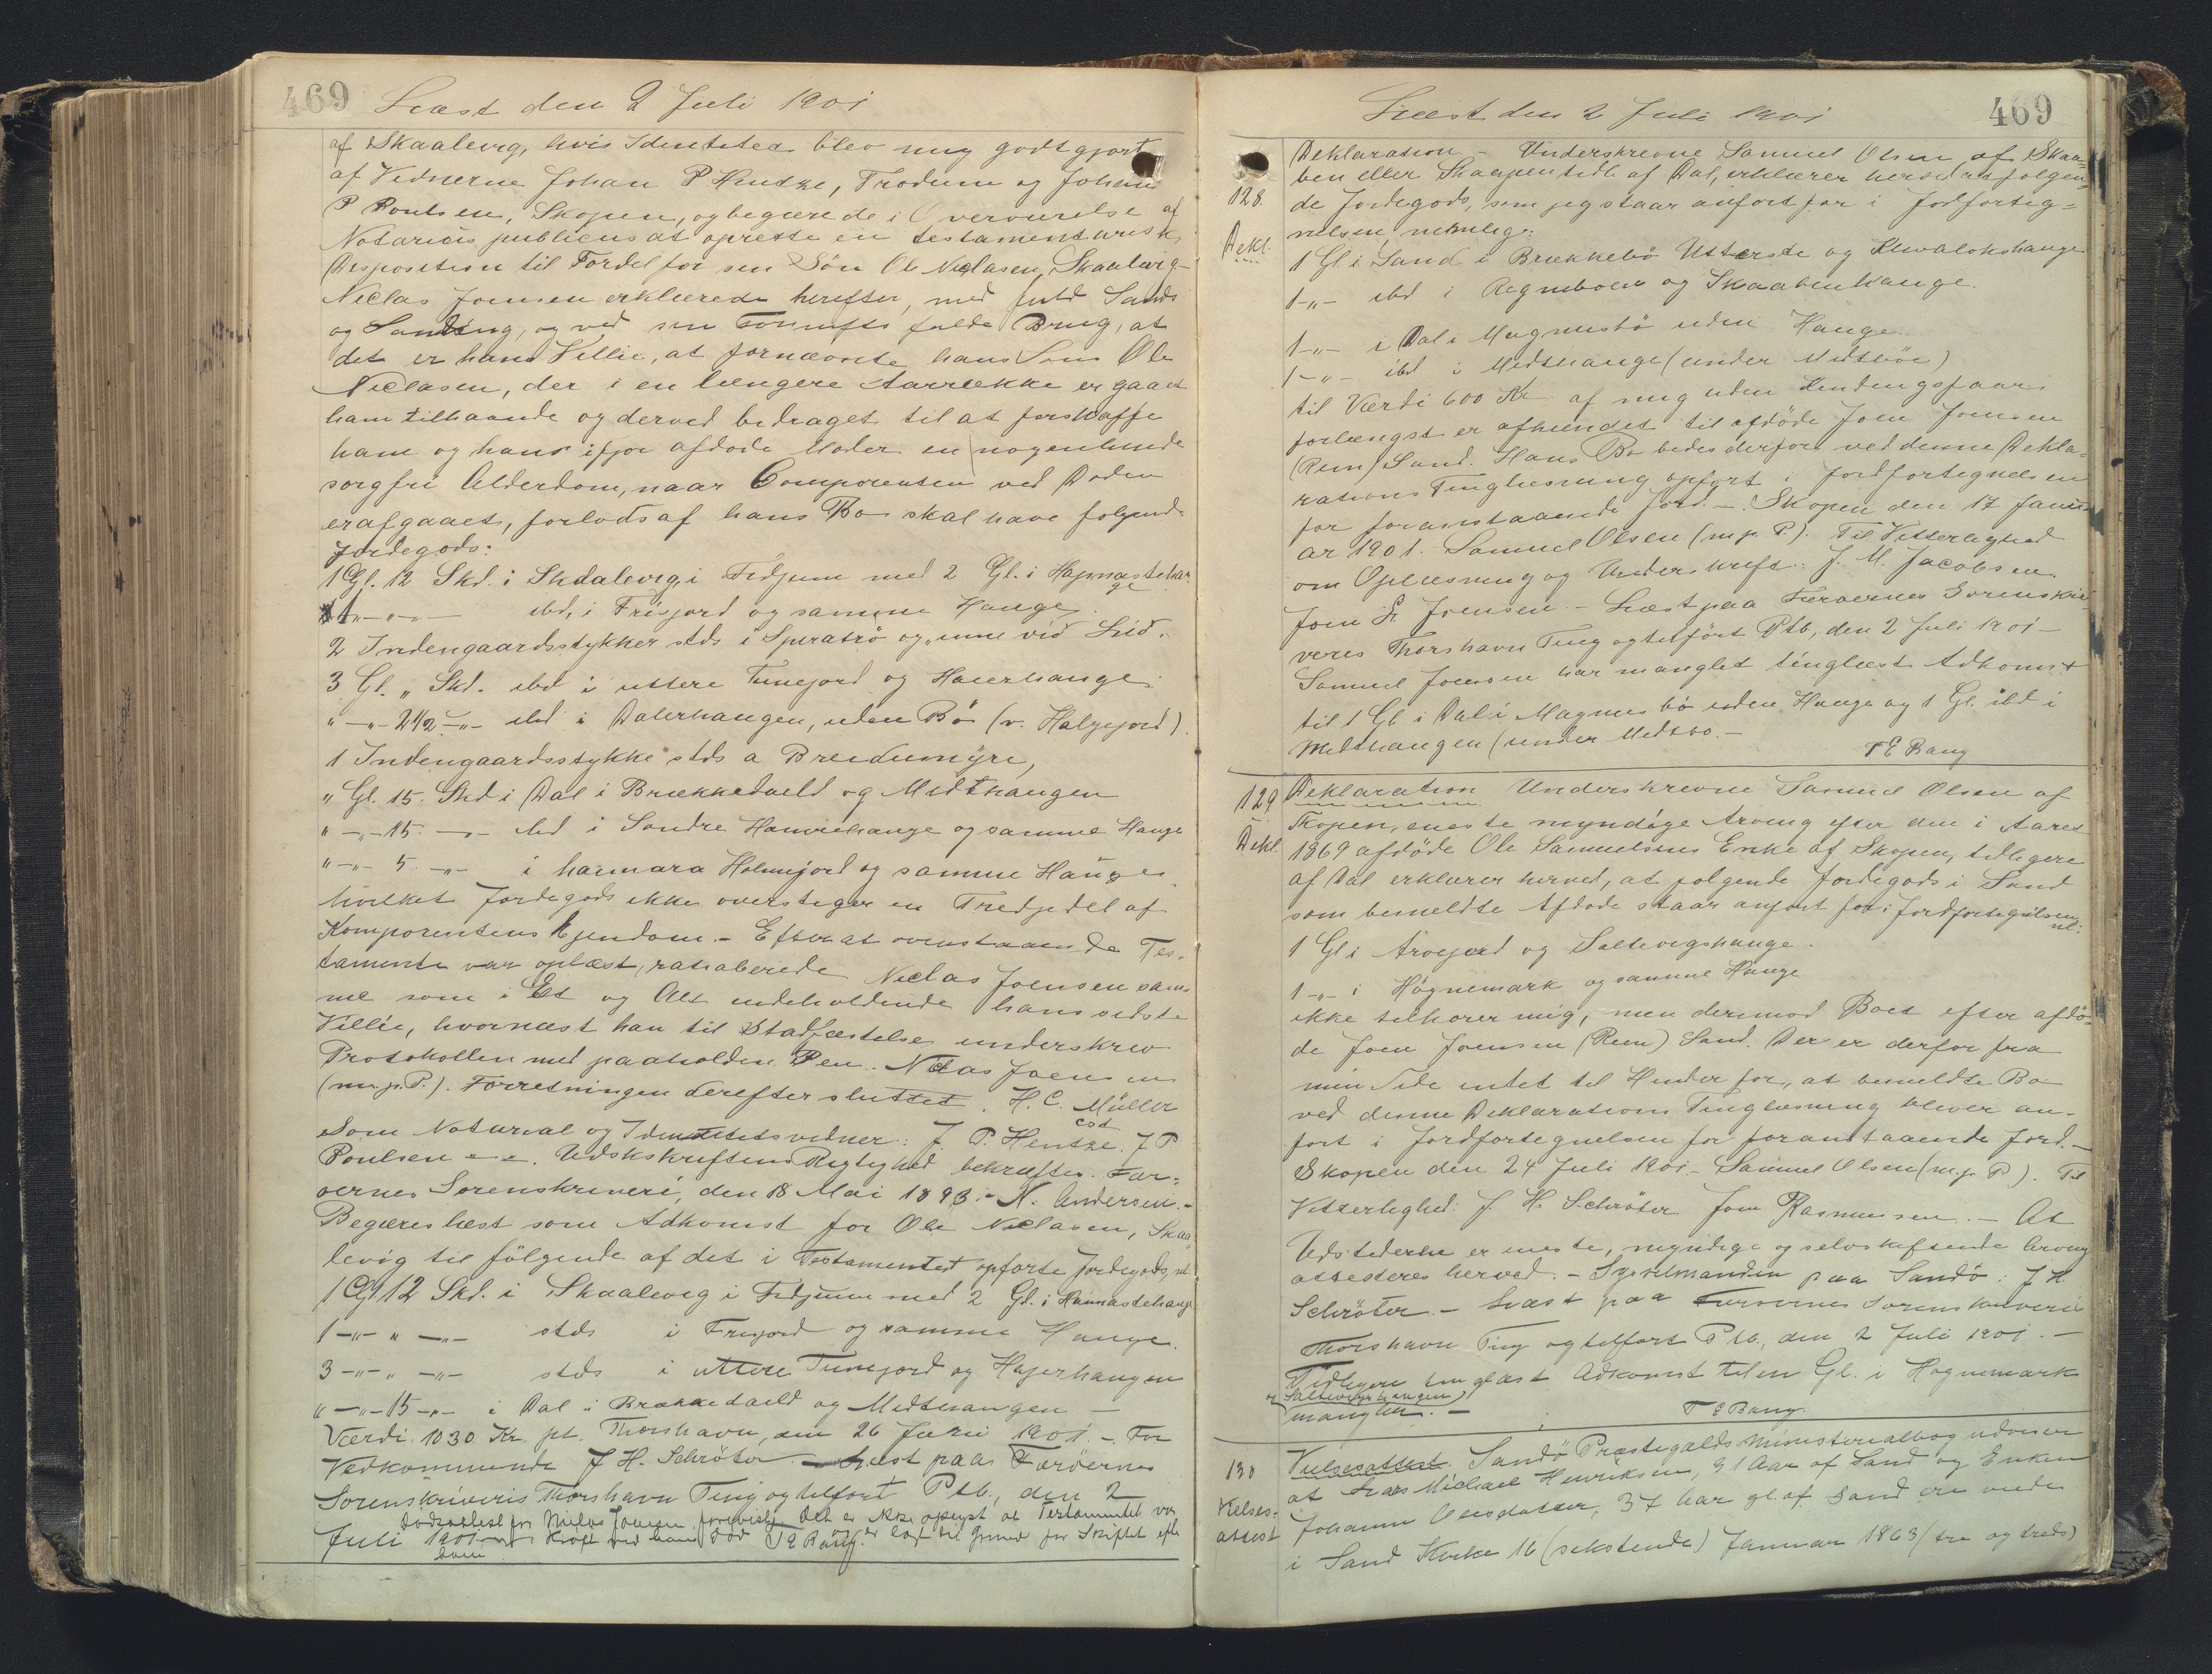 469 Læst den 2 Juli 1901
af Skaalevig, hvis Identitet blev mig godtgjort
af Vidnerne Johan P Hentze, Trodum og Johan
P Poulsen, Skopen, og begærede i Overværelse af
Notarius publicus at oprette en testamentarisk
Disposition til Fordel for sin Søn Ole Niclasen, Skaalevig-
Niclas Joensen erklærede herefter, med fuld Sands
og Samling, og ved sin Fornufts fulde Brug, at
det er hans Villie, at fornævnte hans Søn Ole
Niclasen, der i en længere Aarrække er gaaet
ham tilhaande og derved bidraget til at forskaffe
ham og hans ifjor afdøde Moder en nogenlunde
sorgfri Alderdom, naar Comparenten ved Døden
er afgaaet, forlods af hans Bo skal have følgende
Jordegods:
1 Gl. 12 Skd. i Skaalevig, i Fidjum med 2 Gl. i Hapnastehau
ge
1 -"- "-"- ibd, i Frisjord og samme Hauge
2 Indengaardsstykker stds i Spiratrö og inne vid Lid.
3 Gl. " Skd. ibd i uttere Tunejord og Haierhauge
" -"- 2 1/2 -"- ibd i Dalerhaugen, uden Bö (v. Halgejord).
1 Indengaardsstykke stds a Breidumÿre,
" Gl. 15. Skd i Dal i Brækkedaeld og Midthaugen
" -"- 15. -"- ibd i Søndre Hamrehauge og samme Hauge
" -"- 5 -"- i harmara Holmejord og samme Hauge,
hvilket Jordegods ikke overstiger en Tredjedel af
Komparentens Ejendom. - Efter at ovenstaaende Tes-
tamente var oplæst, ratihaberede Niclas Joensen sam-
me som i Et og Alt indeholdende hans sidste
Villie, hvornæst han til Stadfæstelse underskrev
Protokollen med paaholden Pen. Niclas Joensen
(m. p. P.). Forretningen derefter sluttet. H. C. Müller
cst
Som Notarial og Identitetsvidner: J. P. Hentze. J P
Poulsen - - . Udskriftens Rigtighed bekræfter. Fær-
øernes Sorenskriveri, den 18 Mai 1893. - N. Andersen. -
Begæres læst som Adkomst for Ole Niclasen, Skaa-
levig til følgende af det i Testamentet opførte Jordegods, nl.
1 Gl 12 Skd. i Skaalevig i Fidjum med 2 Gl. i Hamnastehauge
1 -"- " -"- stds i Frisjord og samme Hauge.
3 -"- " -"- stds i uttere Tunejord og Hajerhaugen
" -"- 15 -"- i Dal i Brækkedaeld og Midthaugen -
Værdi 1030 Kr. pt. Thorshavn, den 26 Juni 1901. - For
Vedkommende J H. Schrøter - Læst paa Færøernes
Sorenskriveris Thorshavn Ting og tilført Ptb., den 2
Juli 1901. -
Dødsattest for Niclas Joensen forevist. Det er ikke oplyst at Testamentet var
i Kraft ved hans Død og er lagt til Grund for Skiftet efter
ham
T E Bang.
Læst den 2 Juli 1901 469
128.
Dekl.
Deklaration - Underskrevne Samuel Olsen af Skaa-
ben eller Skaapen tidl. af Dal, erklærer herved at følgen-
de Jordegods, som jeg staar anført for i Jordforteg-
nelsen, nemlig:
1 Gl i Sand i Brækkebö Utterste og Klivalokshauge
1 -"- ibd i Regnboen og Skaabenhauge.
1 -"- i Dal i Magnusbö uden Hauge.
1 -"- ibd i Midthauge (under Midtböe)
til Værdi 600 Kr af mig uden Hendingsfaar
forlængst er afhændet til afdøde Joen Joensen
(Rein) Sand. Hans Bo bedes derfor ved denne Dekla-
rations Tinglæsning opført i Jordfortegnelsen
for foranstaaende Jord. - Skopen den 17 Janu-
ar 1901. Samuel Olsen (m. p. P.). Til Vitterlighed
om Oplæsning og Underskrift: J. M. Jacobsen.
Joen Fr Joensen. - Læst paa Færøernes Sorenskri-
veris Thorshavn Ting og tilført Ptb, den 2 Juli 1901 -
Samuel Joensen har manglet tinglæst Adkomst
til 1 Gl i Dal i Magnusbö uden Hauge og 1 Gl. ibd i
Midthaugen (under Midtbö. -
T E Bang
129
Dekl.
Deklaration Underskrevne Samuel Olsen af
Skopen, eneste myndige Arving efter den i Aaret
1869 afdøde Ole Samuelsens Enke af Skopen, tidligere
af Dal erklærer herved, at følgende Jordegods i Sand
som bemeldte Afdøde staar anført for i Jordfortegnelsen
nl:
1 Gl i Arvejord og Saltvigshauge.
1 -"- i Høgnemark og samme Hauge
ikke tilhører mig, men derimod Boet efter afdö-
de Joen Joensen (Rein) Sand. Der er derfor fra
min Side intet til Hinder for, at bemeldte Bo
ved denne Deklarations Tinglæsning bliver an-
ført i Jordfortegnelsen for foranstaaende Jord. -
Skopen den 24 Juli 1901. - Samuel Olsen (m. p. P). Til
Vitterlighed: J. H. Schröter Joen Rasmussen. - At
Udstederen er eneste, myndige og selvskiftende Arving
attesteres herved. - Sysselmanden paa Sandö: J H.
Schröter. - Læst paa Færøernes Sorenskriveris
Thorshavn Ting og tilført Ptb., den 2 Juli 1901. -
Tidligere tinglæst Adkomst til en Gl. i Høgnemark
og Saltvigshaugen)
mangler. -
T E Bang.
130
Vielses-
attest
Vielsesattest. Sandö Præstegjælds Ministerialbog udviser
at Lars Michael Henriksen, 31 Aar af Sand og Enken
Johanne Olesdatter, 37 Aar gl. af Sand ere viede
i Sand Kirke 16 (sekstende) Januar 1863 (tre og treds)